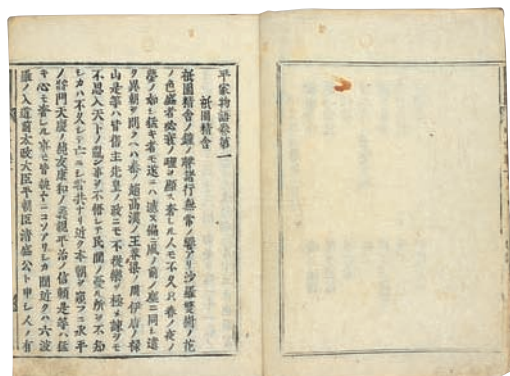 平家物語巻第一
祇園精舎
祇園精舎ノ鐘ノ聲諸行無常ノ響アリ沙羅雙樹ノ花
ノ色盛者必衰ノ理ヲ顕ス奢レル人モ不久只春ノ夜ノ
夢ノ如シ猛キ者モ遂ニハ滅ス偏ニ風ノ前ノ塵ニ同シ遠
ク異朝ヲ問ヘハ秦ノ趙高漢ノ王莽梁ノ周伊唐ノ禄
山是等ハ皆舊主先皇ノ政ニモ不従樂ヲ極メ諫ヲモ
不思入天下ノ乱ン事ヲ不悟シテ民間ノ憂ル所ヲ不知
シカハ不久シテ亡ニシ者共ナリ近ク本朝ヲ窺フニ承平
ノ将門天慶ノ純友康和ノ義親平治ノ信頼是等ハ猛
キ心モ奢レル事モ皆執々ニコソアリシカ間近クハ六波
羅ノ入道前太政大臣平朝臣清盛公ト申シ人ノ有